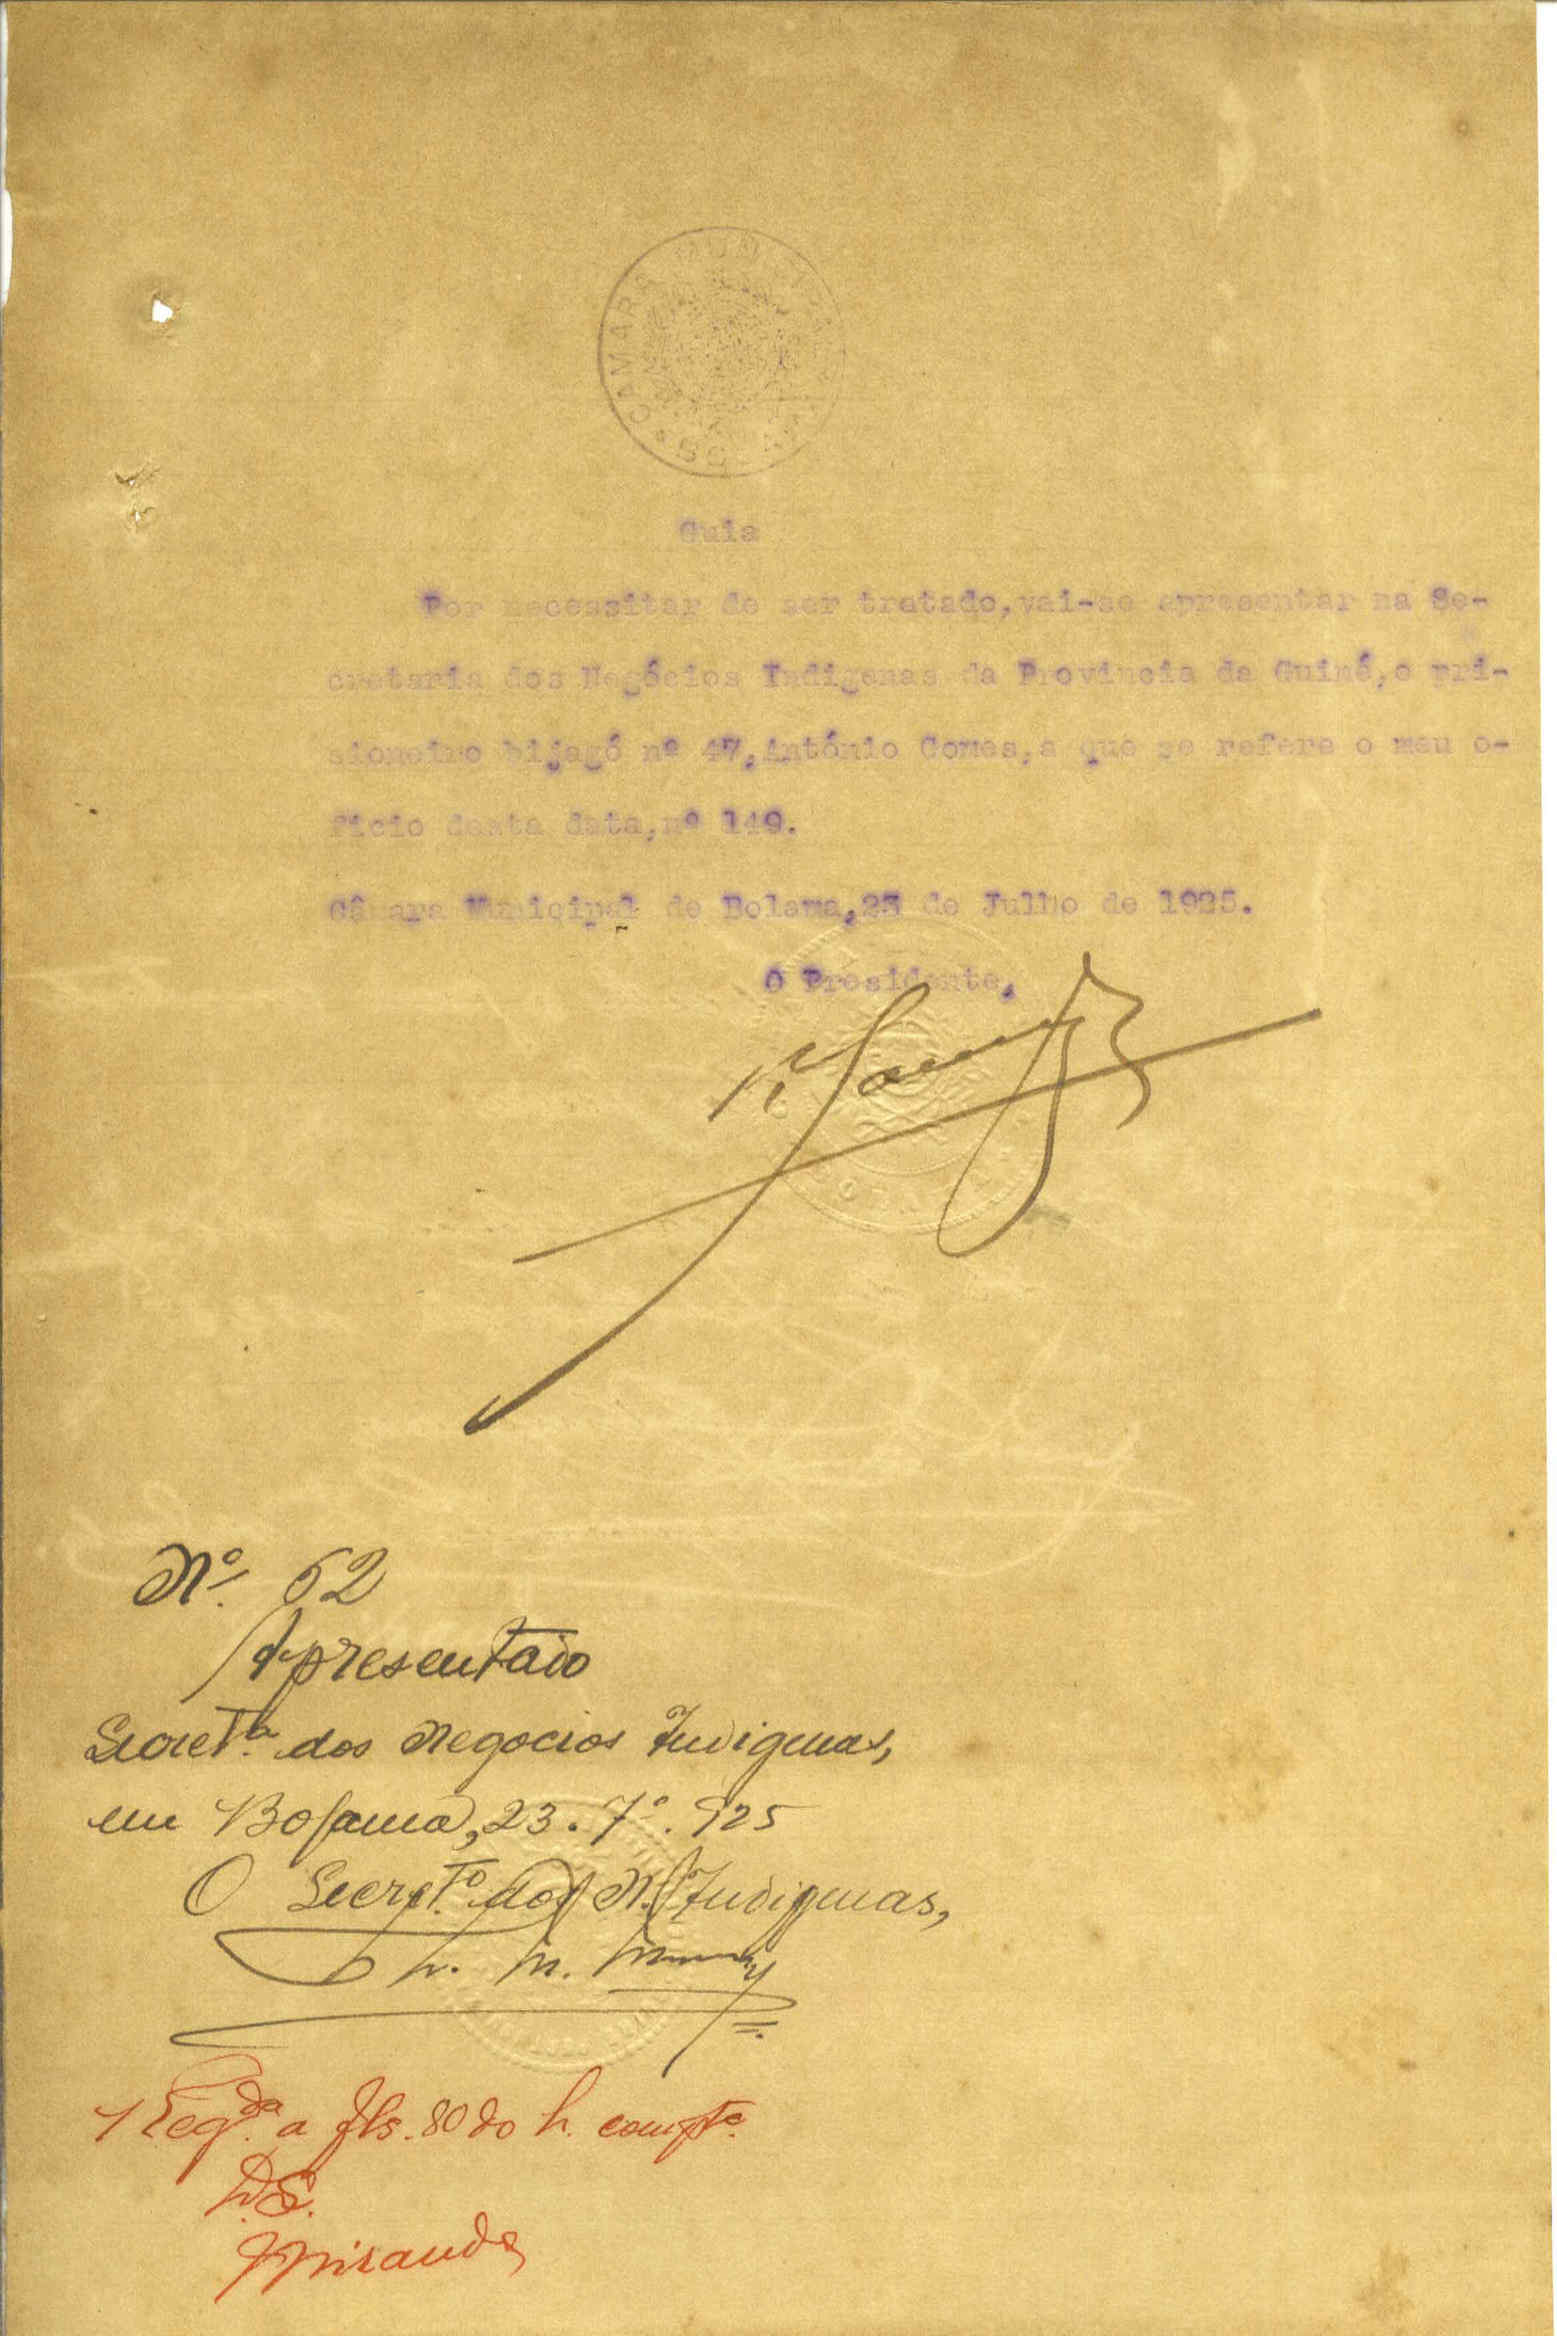 CAMARA MUNICIPAL
Guia
Por necessitar de ser tratado, vai-se apresentar na Se-
cretaria dos Negócios Indigenas da Provincia da Guiné, o pri-
sioneiro bijagó nº 47, António Gomes, a que se refere o meu o-
ficio desta data, nº 149.
Câmara Municipal de Bolama, 23 de Julho de 1925.
O Presidente,
Nº 62
Apresentado
Secretª dos Negocios Indigenas,
em Bolama, 23. 7º. 925
O Secretº dos N. Indigenas,
Regda a fls. 80 do L. compte.
D.S.
JMiranda